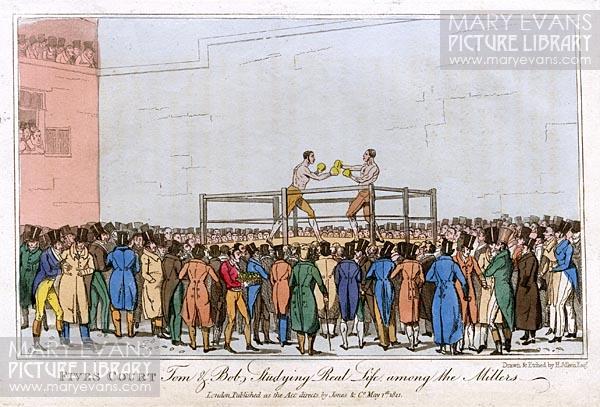 MARY EVANS
PICTURE LIBRARY
www.maryevans.com
MARY EVANS
PICTURE LIBRARY
www.maryevans.com
MARY EVANS
PICTURE LIBRARY
www.maryevans.com
Drawn & Etched by H. Alken Esqr.
FIVES COURT Tom & Bob, Studying Real Life, among the Millers
London, Published as the Act directs, by Jones & Co. May 1st 1821.